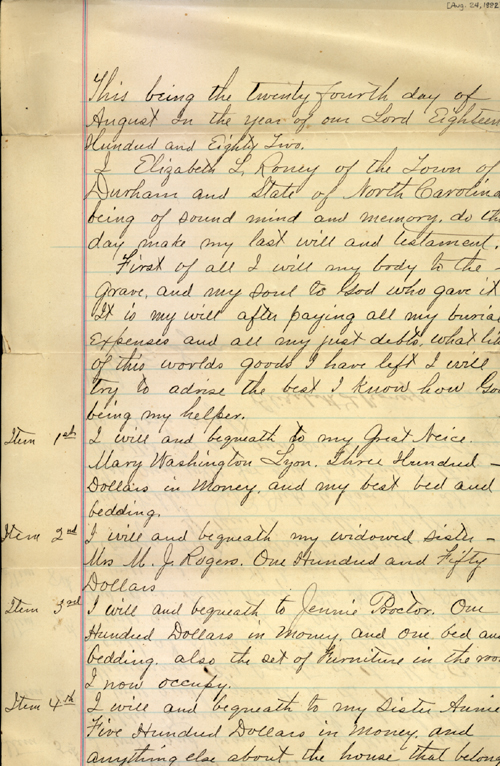 [Aug. 24, 1882
This being the twenty fourth day of
August in the year of our Lord Eighteen
Hundred and Eighty Two.
I Elizabeth L. Roney of the Town of
Durham and State of North Carolina
being of sound mind and memory, do th
day make my last will and testament.
First of all I will my body to the -
Grave, and my soul to God who gave it
It is my will after paying all my buria
Expenses and all my just debts, what lit
of this worlds goods I have left I will
try to advise the best I know how God
being my helper.
Item 1st I will and bequeath to my Great Neice.
Mary Washington Lyon. Three Hundred -
Dollars in Money, and my best bed and
bedding.
Item 2nd I will and bequeath my widowed sister -
Mrs M. J. Rogers. One Hundred and Fifty
Dollars
Item 3rd I will and bequeath to Jennie Proctor. One
Hundred Dollars in Money, and one bed and
bedding. also the set of Furniture in the room
I now occupy.
Item 4th I will and bequeath to my Sister Annie
Five Hundred Dollars in Money, and
anything else about the house that belong